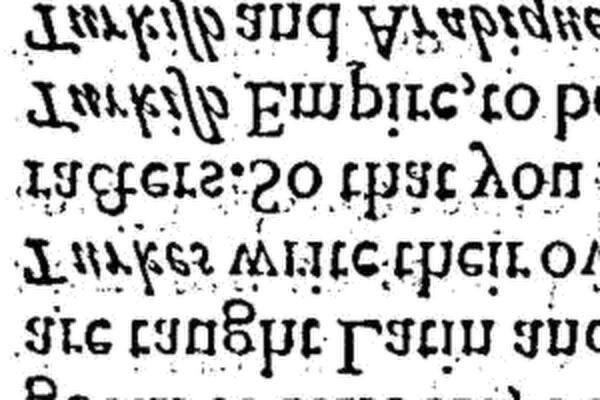 are taught Latin and
Turkes write their ow
racters: So that you
Turkiſh Empire, to be
Turkiſh and Arabique